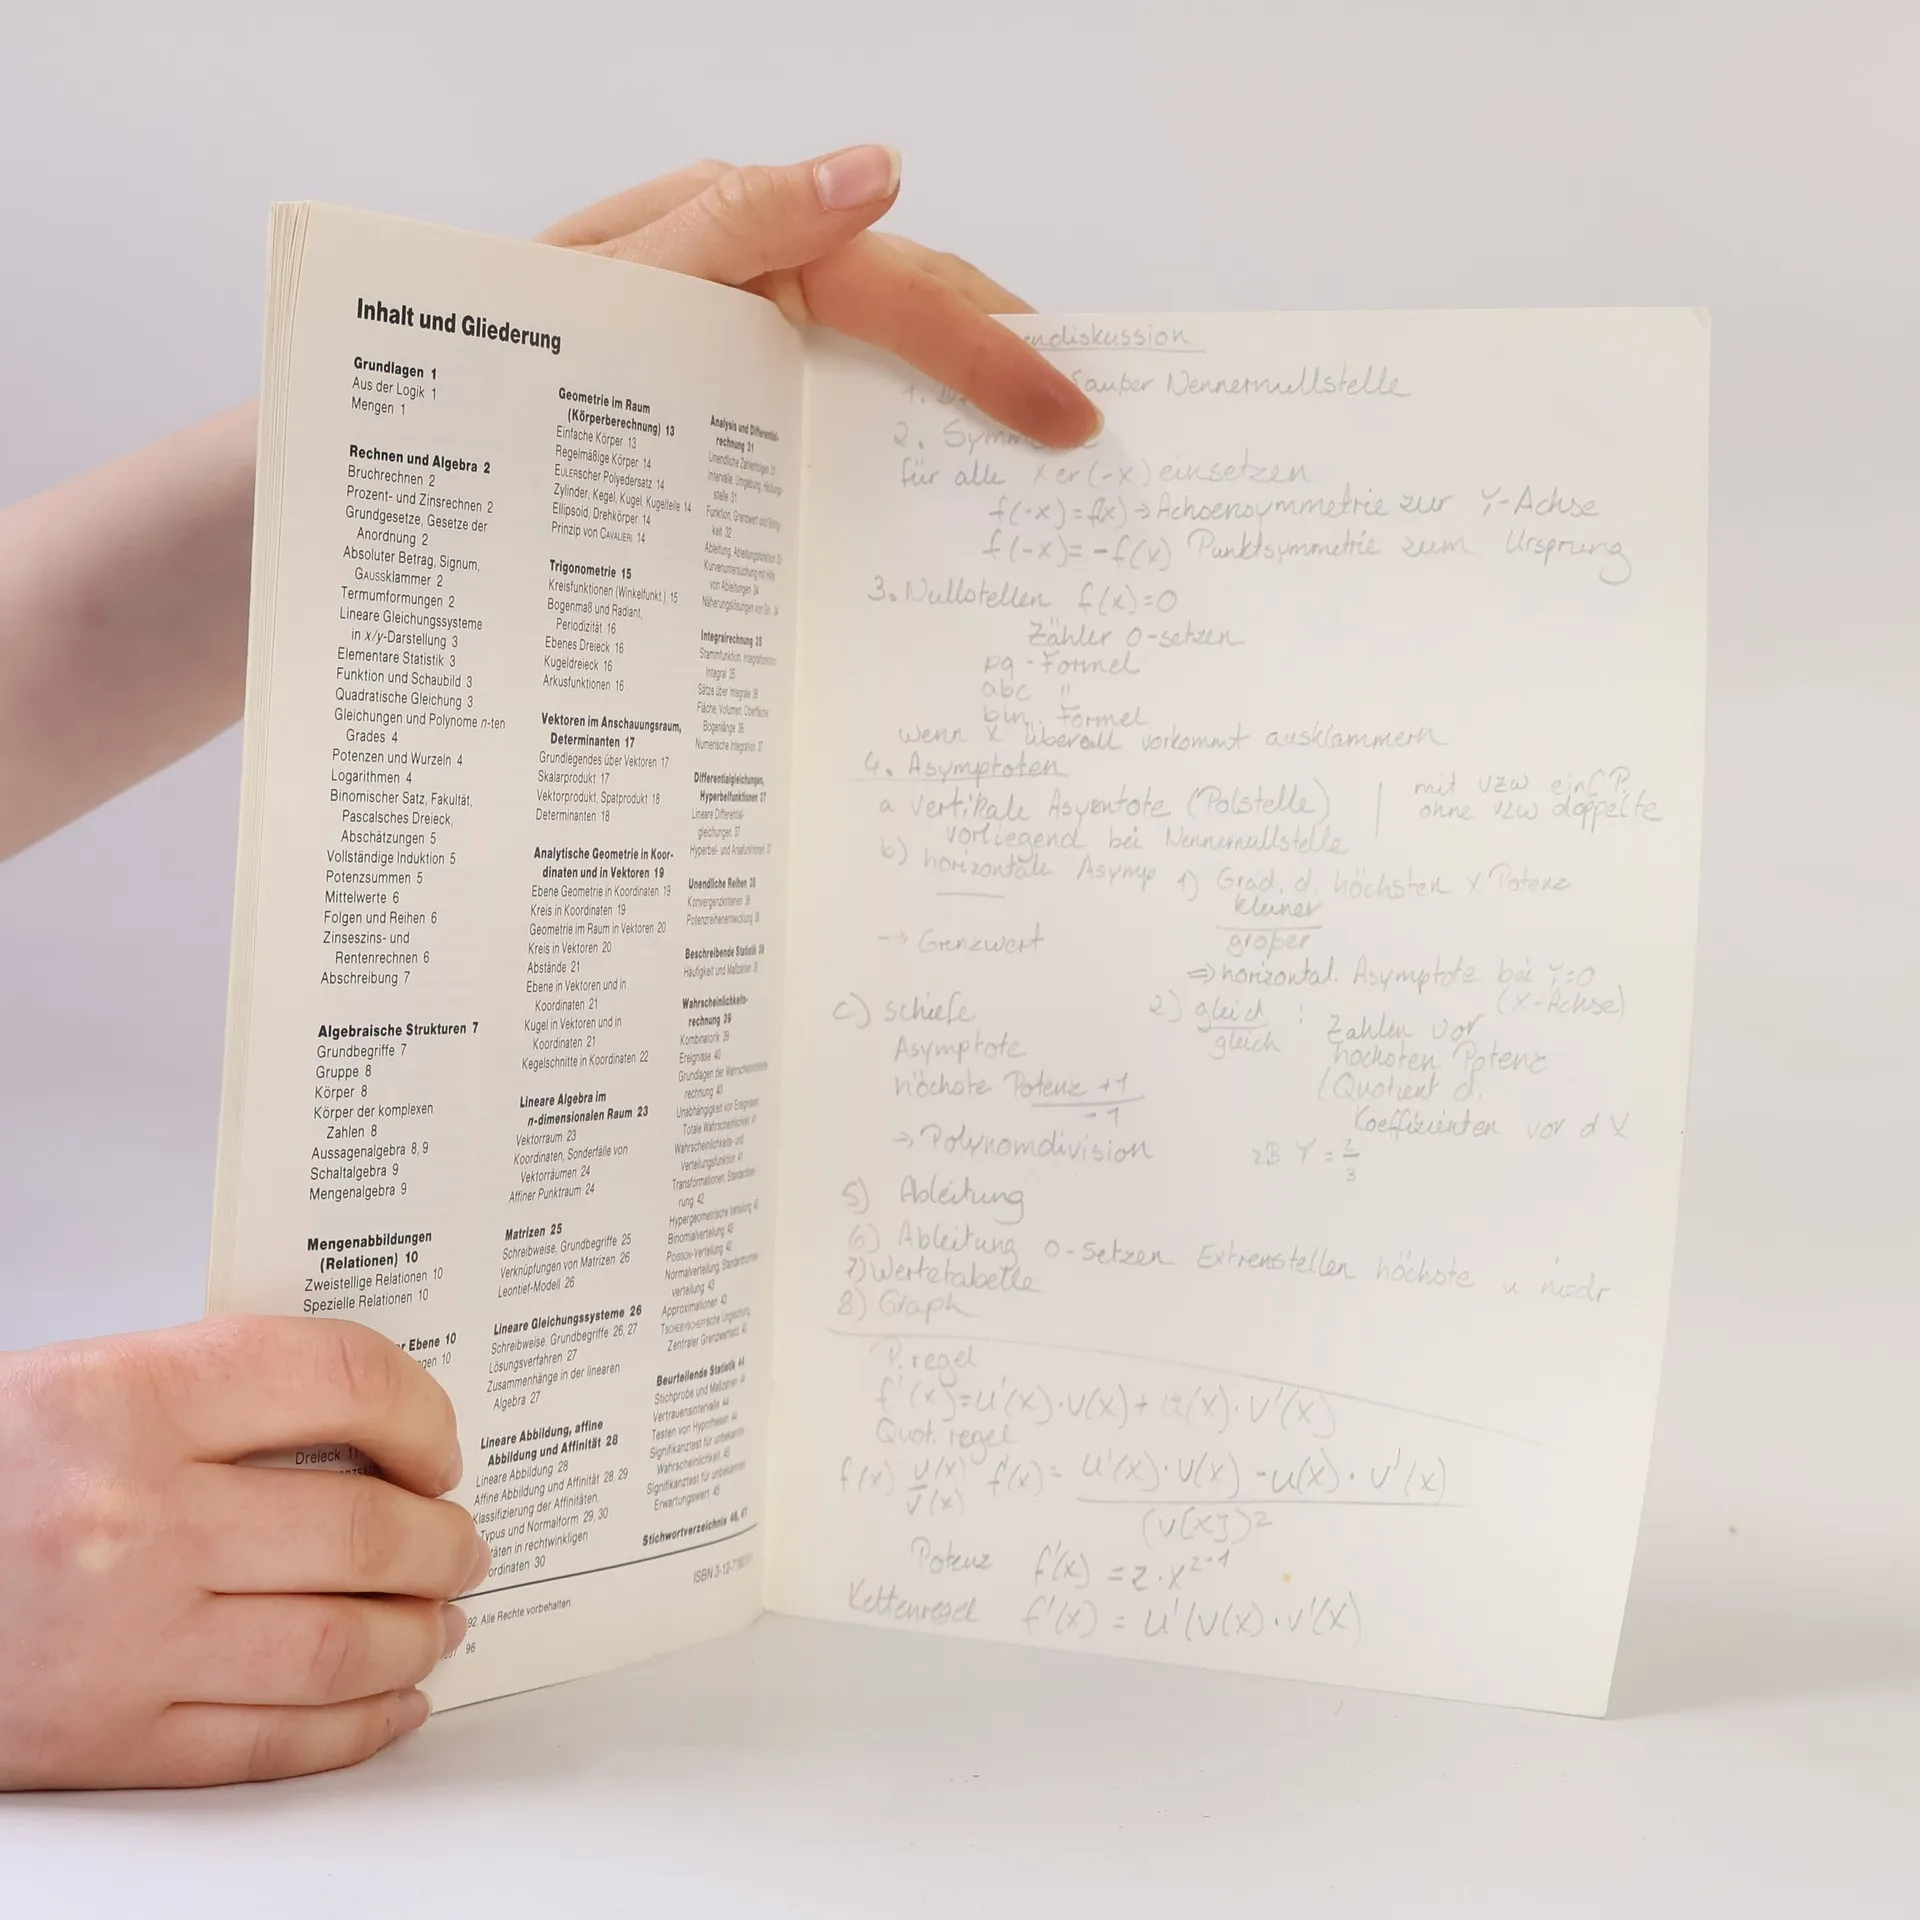 Inhalt und Gliederung
Grundlagen 1
Aus der Logik 1
Mengen 1
Rechnen und Algebra 2
Bruchrechnen 2
Prozent- und Zinsrechnen 2
Grundgesetze, Gesetze der
Anordnung 2
Absoluter Betrag, Signum,
GAUSSklammer 2
Termumformungen 2
Lineare Gleichungssysteme
in x/y-Darstellung 3
Elementare Statistik 3
Funktion und Schaubild 3
Quadratische Gleichung 3
Gleichungen und Polynome n-ten
Grades 4
Potenzen und Wurzeln 4
Logarithmen 4
Binomischer Satz, Fakultät,
Pascalsches Dreieck,
Abschätzungen 5
Vollständige Induktion 5
Potenzsummen 5
Mittelwerte 6
Folgen und Reihen 6
Zinseszins- und
Rentenrechnen 6
Abschreibung 7
Algebraische Strukturen 7
Grundbegriffe 7
Gruppe 8
Körper 8
Körper der komplexen
Zahlen 8
Aussagenalgebra 8, 9
Schaltalgebra 9
Mengenalgebra 9
Mengenabbildungen
(Relationen) 10
Zweistellige Relationen 10
Spezielle Relationen 10
Ebene 10
gen 10
Dreieck 11
Geometrie im Raum
(Körperberechnung) 13
Einfache Körper 13
Regelmäßige Körper 14
EULERscher Polyedersatz 14
Zylinder, Kegel, Kugel, Kugelteile 14
Ellipsoid, Drehkörper 14
Prinzip von CAVALIERI 14
Trigonometrie 15
Kreisfunktionen (Winkelfunkt.) 15
Bogenmaß und Radiant,
Periodizität 16
Ebenes Dreieck 16
Kugeldreieck 16
Arkusfunktionen 16
Vektoren im Anschauungsraum,
Determinanten 17
Grundlegendes über Vektoren 17
Skalarprodukt 17
Vektorprodukt, Spatprodukt 18
Determinanten 18
Analytische Geometrie in Koor-
dinaten und in Vektoren 19
Ebene Geometrie in Koordinaten 19
Kreis in Koordinaten 19
Geometrie im Raum in Vektoren 20
Kreis in Vektoren 20
Abstände 21
Ebene in Vektoren und in
Koordinaten 21
Kugel in Vektoren und in
Koordinaten 21
Kegelschnitte in Koordinaten 22
Lineare Algebra im
n-dimensionalen Raum 23
Vektorraum 23
Koordinaten, Sonderfälle von
Vektorräumen 24
Affiner Punktraum 24
Matrizen 25
Schreibweise, Grundbegriffe 25
Verknüpfungen von Matrizen 26
Leontief-Modell 26
Lineare Gleichungssysteme 26
Schreibweise, Grundbegriffe 26, 27
Lösungsverfahren 27
Zusammenhänge in der linearen
Algebra 27
Lineare Abbildung, affine
Abbildung und Affinität 28
Lineare Abbildung 28
Affine Abbildung und Affinität 28, 29
Klassifizierung der Affinitäten,
Typus und Normalform 29, 30
täten in rechtwinkligen
ordinaten 30
Analysis und Differential-
rechnung 31
Unendliche Zahlenfolgen 31
Intervalle, Umgebung, Häufungs-
stelle 31
Funktion, Grenzwert und Stetig-
keit 32
Ableitung, Ableitungsfunktion 33
Kurvenuntersuchung mit Hilfe
von Ableitungen 34
Näherungslösungen von Gln. 34
Integralrechnung 35
Stammfunktion, Integralfunktion
Integral 35
Sätze über Integrale 36
Fläche, Volumen, Oberfläche
Bogenlänge 36
Numerische Integration 37
Differentialgleichungen,
Hyperbelfunktionen 37
Lineare Differential-
gleichungen 37
Hyperbel- und Areafunktionen 37
Unendliche Reihen 38
Konvergenzkriterien 38
Potenzreihenentwicklung 38
Beschreibende Statistik 39
Häufigkeit und Maßzahlen 39
Wahrscheinlichkeits-
rechnung 39
Kombinatorik 39
Ereignisse 40
Grundlagen der Wahrscheinlichkeits-
rechnung 40
Unabhängigkeit von Ereignissen
Totale Wahrscheinlichkeit 41
Wahrscheinlichkeits- und
Verteilungsfunktion 41
Transformationen, Standardisie-
rung 42
Hypergeometrische Verteilung 42
Binomialverteilung 42
POISSON-Verteilung 42
Normalverteilung, Standardnormal-
verteilung 43
Approximationen 43
TSCHEBYSCHEFFsche Ungleichung
Zentraler Grenzwertsatz 43
Beurteilende Statistik 44
Stichprobe und Maßzahlen 44
Vertrauensintervalle 44
Testen von Hypothesen 44
Signifikanztest für unbekannte
Wahrscheinlichkeit 45
Signifikanztest für unbekannten
Erwartungswert 45
Stichwortverzeichnis 46, 47
ISBN 3-12-
92. Alle Rechte vorbehalten
96
endiskussion
1. D außer Nennernullstelle
2. Symm
für alle x er (-x) einsetzen
f(-x)=f(x) ⇒ Achsensymmetrie zur Y-Achse
f(-x)= -f(x) Punktsymmetrie zum Ursprung
3. Nullstellen f(x)=0
Zähler 0-setzen
pq - Formel
abc "
bin. Formel
wenn x überall vorkommt ausklammern
4. Asymptoten
a vertikale Asymtote (Polstelle) | mit VZW einf P.
ohne VZW doppelte
vorliegend bei Nennernullstelle
b) horizontale Asymp 1) Grad. d. höchsten x Potenz
kleiner
größer
--> Grenzwert
⇒ horizontal. Asymptote bei Y=0
(X-Achse)
c) schiefe
Asymptote
höchste Potenz +1
-1
⇒ Polynomdivision
2) gleich : Zahlen vor
gleich höchsten Potenz
(Quotient d.
Koeffizienten vor d X
zB Y = 2/3
5) Ableitung
6) Ableitung 0-Setzen Extremstellen höchste u niedr
7) Wertetabelle
8) Graph
P. regel
f'(x)=u'(x)·v(x)+u(x)·v'(x)
Quot. regel
f(x) u(x)/v(x) f'(x)= u'(x)·v(x)-u(x)·v'(x)
(v[x])²
Potenz f'(x) = z·x^z-1
Kettenregel f'(x) = u'(v(x)·v'(x)